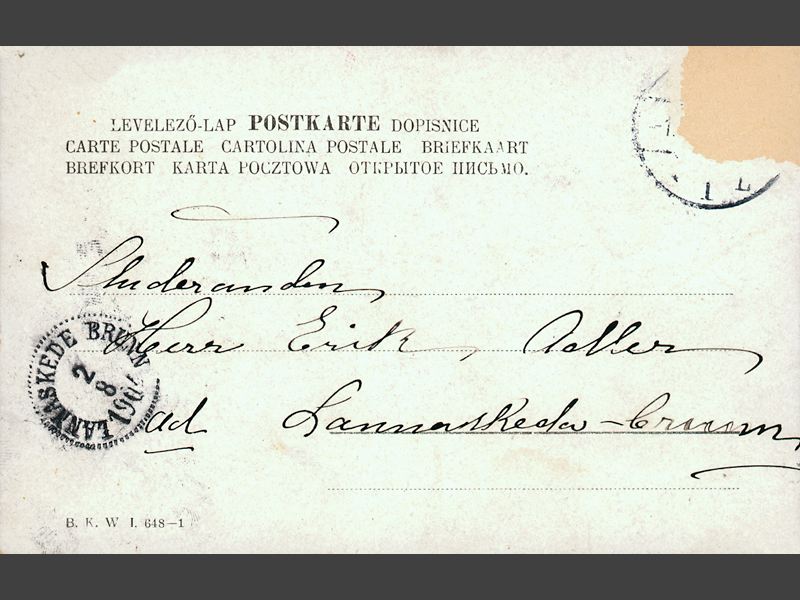 LEVELEZŐ-LAP POSTKARTE DOPISNICE
CARTE POSTALE CARTOLINA POSTALE BRIEFKAART
BREFKORT KARTA POCZTOWA ОТКРЫТОЕ ПИСЬМО.
Studeranden
Herr Erik Adler
ad Lannaskede-brunn
LANNASKEDE BRUNN
2
8
1904
B. K. W. I. 648-1